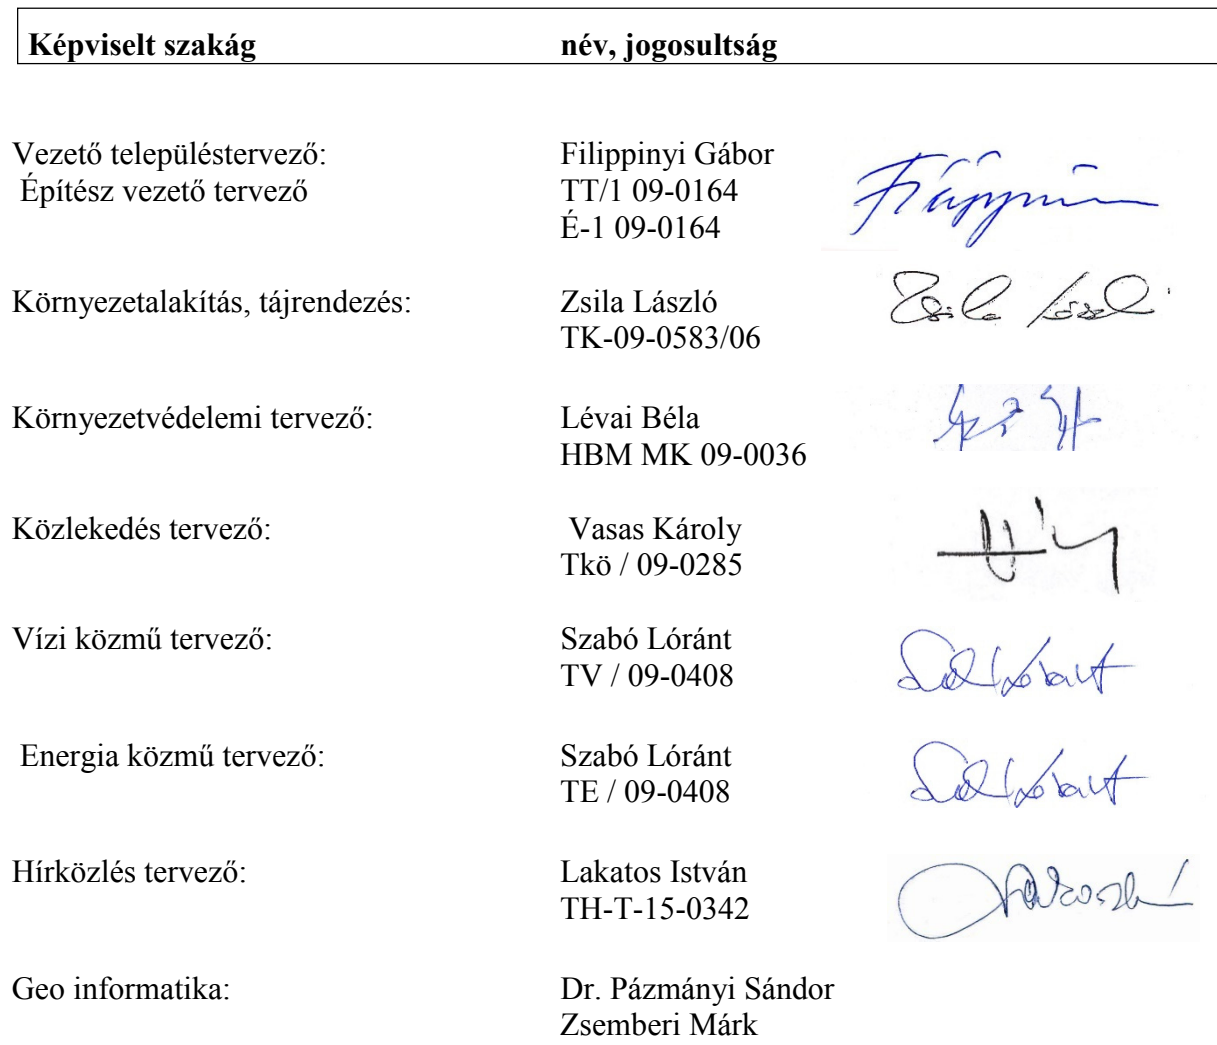 Képviselt szakág név, jogosultság
Vezető településtervező: Filippinyi Gábor
Építész vezető tervező TT/1 09-0164
É-1 09-0164
Környezetalakítás, tájrendezés: Zsila László
TK-09-0583/06
Zsila László
Környezetvédelemi tervező: Lévai Béla
HBM MK 09-0036
Közlekedés tervező: Vasas Károly
Tkö / 09-0285
Vízi közmű tervező: Szabó Lóránt
TV / 09-0408
Energia közmű tervező: Szabó Lóránt
TE / 09-0408
Hírközlés tervező: Lakatos István
TH-T-15-0342
Geo informatika: Dr. Pázmányi Sándor
Zsemberi Márk